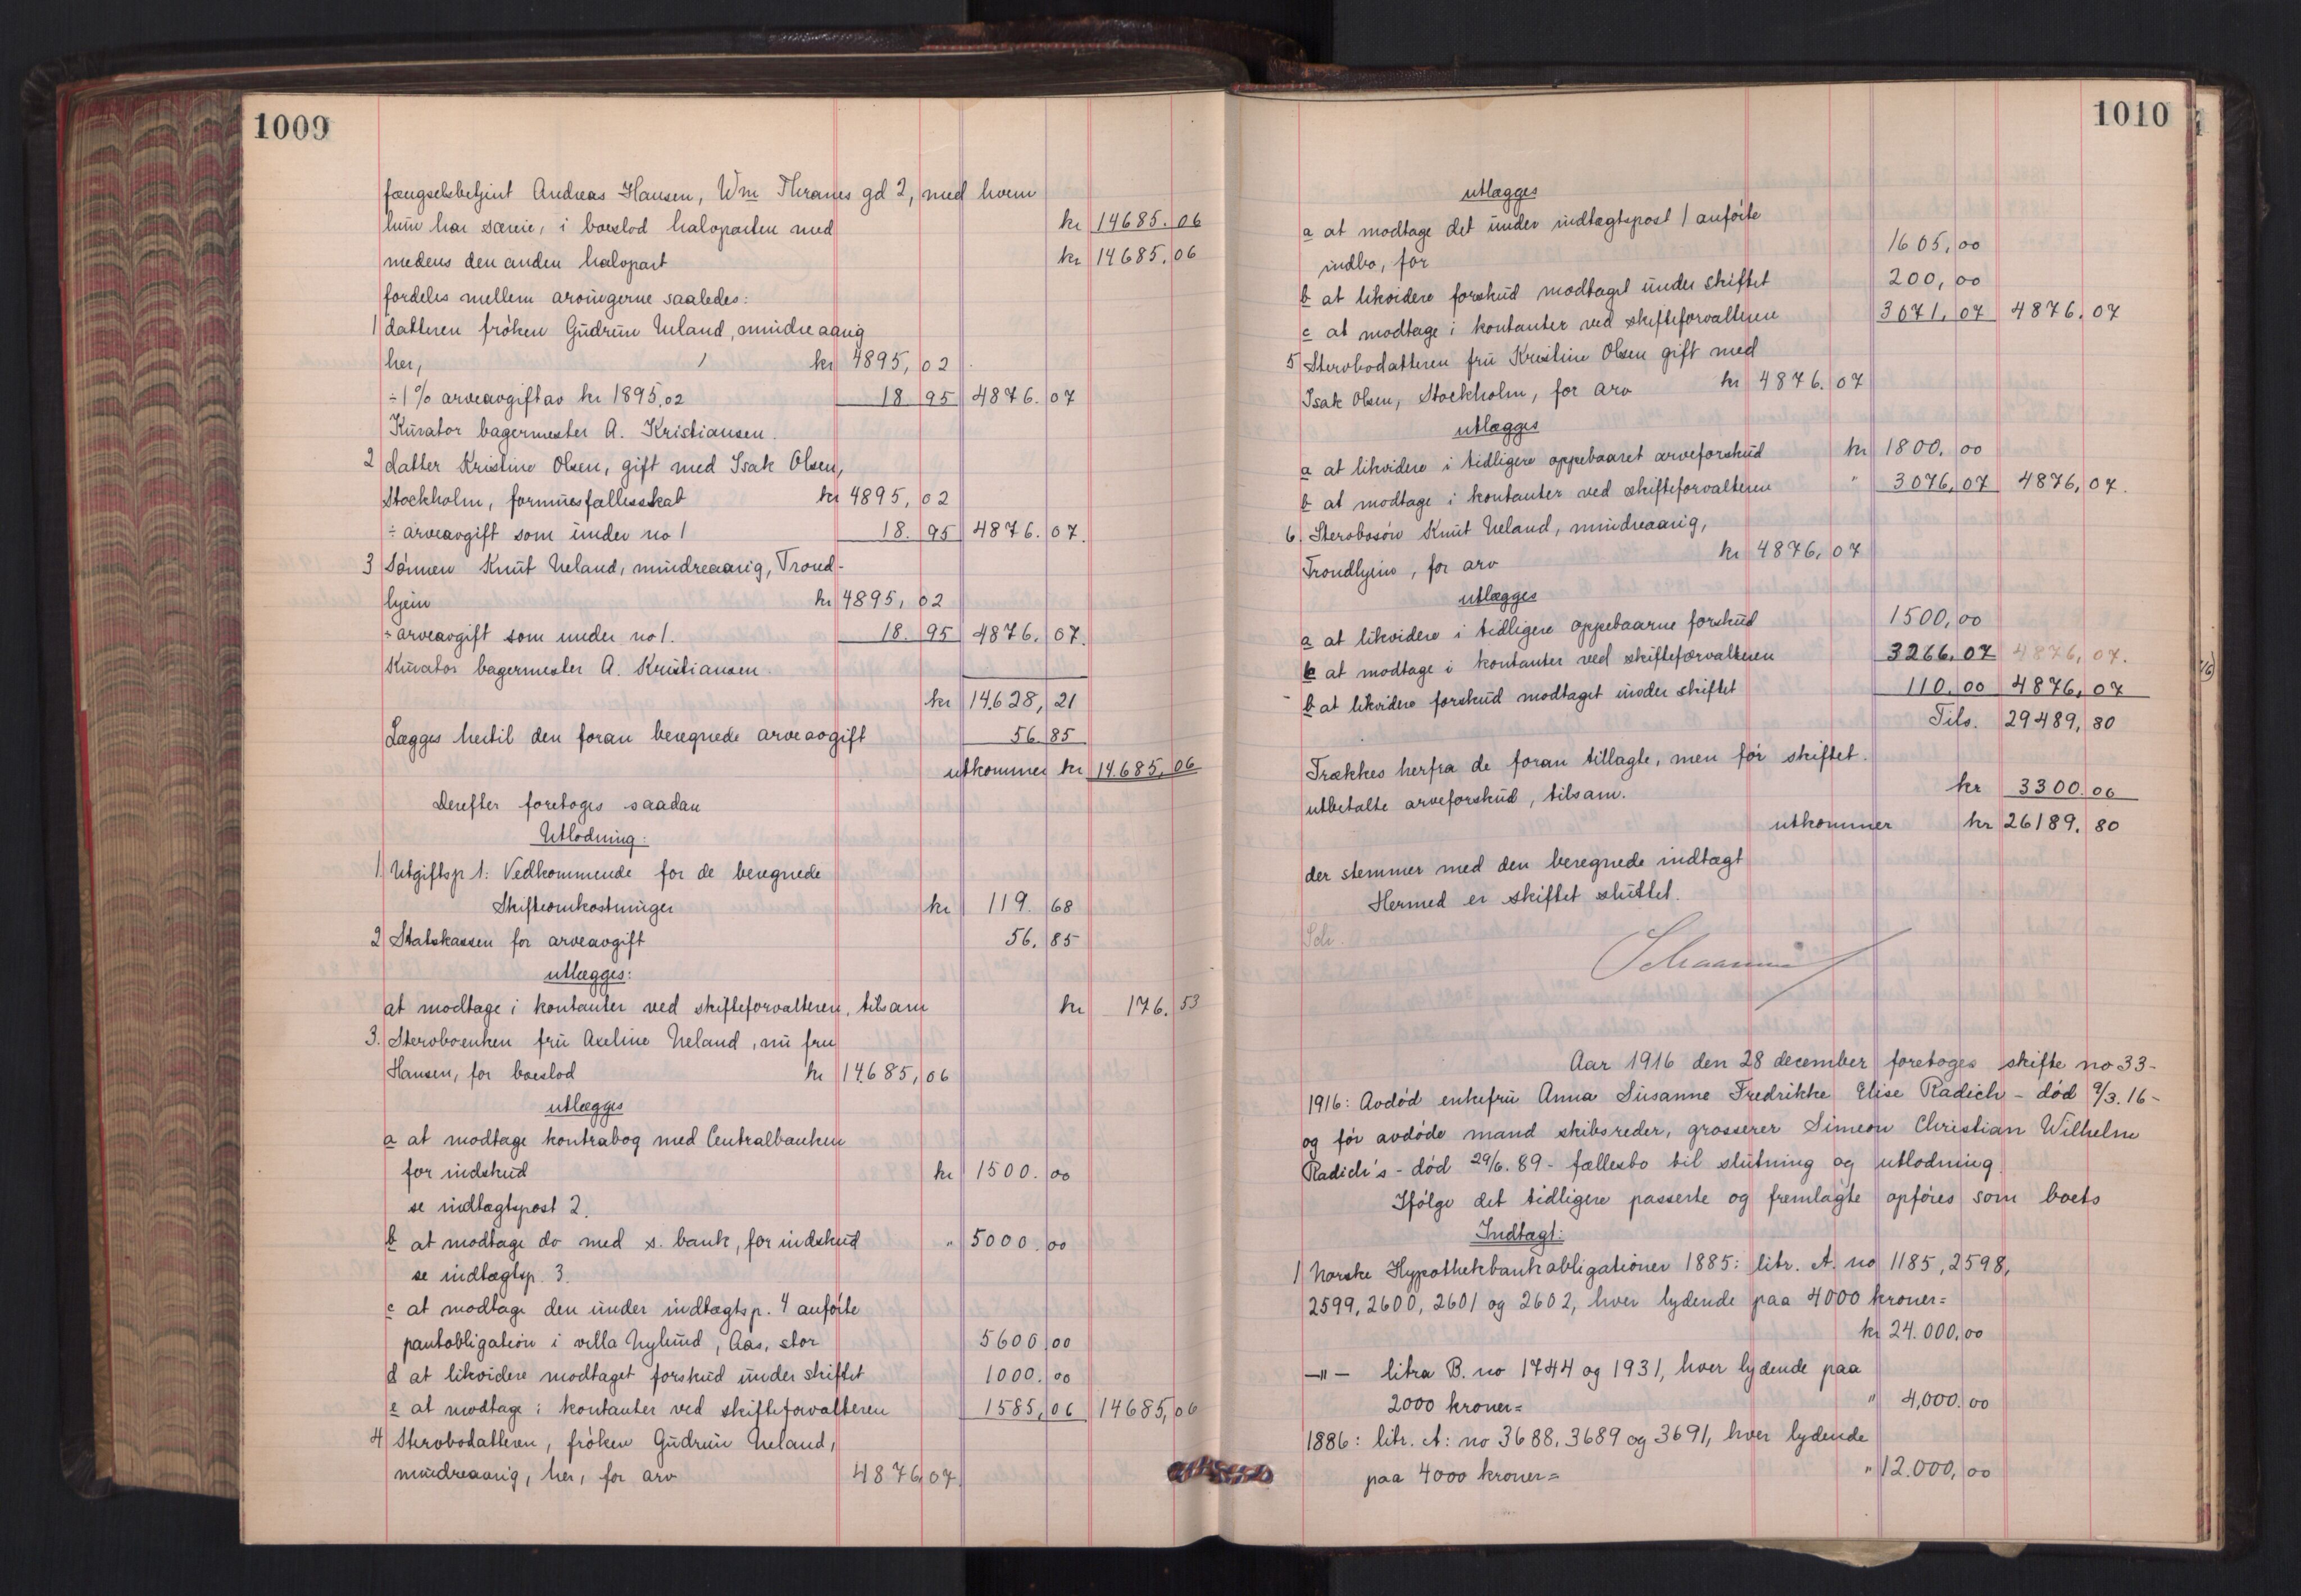 1009
fængselsbetjent Andreas Hansen, Wm Thranes gd 2, med hvem
hun har særeie, i boeslod halvparten med kr 14685.06
medens den anden halvpart kr 14685.06
fordeles mellem arvingerne saaledes:
1 datteren frøken Gudrun Neland, mindreaarig
her, kr 4895,02
÷ 1% arveavgift av kr 1895,02 18.95 4876.07
Kurator bagermester A. Kristiansen.
2 datter Kristine Olsen, gift med Isak Olsen,
Stockholm, formuesfællesskab kr 4895,02
÷ arveavgift som under no 1 18.95 4876.07.
3 Sønnen Knut Neland, mindreaarig, Trond-
hjem kr 4895,02
÷ arveavgift som under no 1. 18.95 4876.07.
Kurator bagermester A. Kristiansen.
kr 14.628,21
Lægges hertil den foran beregnede arveavgift 56.85
utkommer kr 14.685,06
Derefter foretoges saadan
Utlodning:
1 Utgiftsp 1: Vedkommende for de beregnede
Skifteomkostninger kr 119.68
2 Statskassen for arveavgift 56.85
utlægges:
at modtage i kontanter ved skifteforvalteren, tilsam kr 176.53
3. Stervboenken fru Axeline Neland, nu fru
Hansen, for boeslod kr 14.685,06
utlægges
a at modtage kontrabog med Centralbanken
for indskud kr 1500.00
se indtægtspost 2.
b at modtage do med s. bank, for indskud " 5000.00
se indtægtsp. 3.
c at modtage den under indtægtsp. 4 anførte
pantobligation i villa Nylund, Aas, stor 5600,00
d at likvidere modtaget forskud under skiftet 1000.00
e at modtage i kontanter ved skifteforvalteren 1585,06 14685,06
4 Stervbodatteren, frøken Gudrun Neland,
mindreaarig, her, for arv 4876,07.
1010
utlægges
a at modtage det under indtægtspost 1 anførte
indbo, for 1605,00
b at likvidere forskud modtaget under skiftet 200,00
c at modtage i kontanter ved skifteforvalteren 3071,07 4876.07
5 Stervbodatteren fru Kristine Olsen gift med
Isak Olsen, Stockholm, for arv kr 4876.07
utlægges
a at likvidere i tidligere oppebaaret arveforskud kr 1800.00
b at modtage i kontanter ved skifteforvalteren " 3076,07 4876,07.
6. Stervbosøn Knut Neland, mindreaarig,
Trondhjem, for arv kr 4876,07
utlægges
a at likvidere i tidligere oppebaarne forskud 1500,00
c at modtage i kontanter ved skifteforvalteren 3266,07 4876,07.
- b at likvidere forskud modtaget under skiftet 110.00 4876,07
Tils. 29489,80
Trækkes herfra de foran tillagte, men før skiftet
utbetalte arveforskud, tilsam. kr 3300.00
utkommer kr 26189.80
der stemmer med den beregnede indtægt
Hermed er skiftet sluttet.
Aar 1916 den 28 december foretoges skifte no 33-
1916: Avdød enkefru Anna Susanne Fredrikke Elise Radich - død 9/3.16-
og før avdøde mand skibsreder, grosserer Simeon Christian Wilhelm
Radich's - død 29/6.89 - fællesbo til slutning og utlodning.
Ifølge det tidligere passerte og fremlagte opføres som boets
Indtægt:
1 Norske Hypothekbankobligationer 1885: litr. A. no 1185, 2598,
2599, 2600, 2601 og 2602, hver lydende paa 4000 kroner=
kr 24.000,00
-"- litra B. no 1744 og 1931, hver lydende paa
2000 kroner= " 4,000.00
1886: litr. A: no 3688, 3689 og 3691, hver lydende
paa 4000 kroner= " 12.000,00